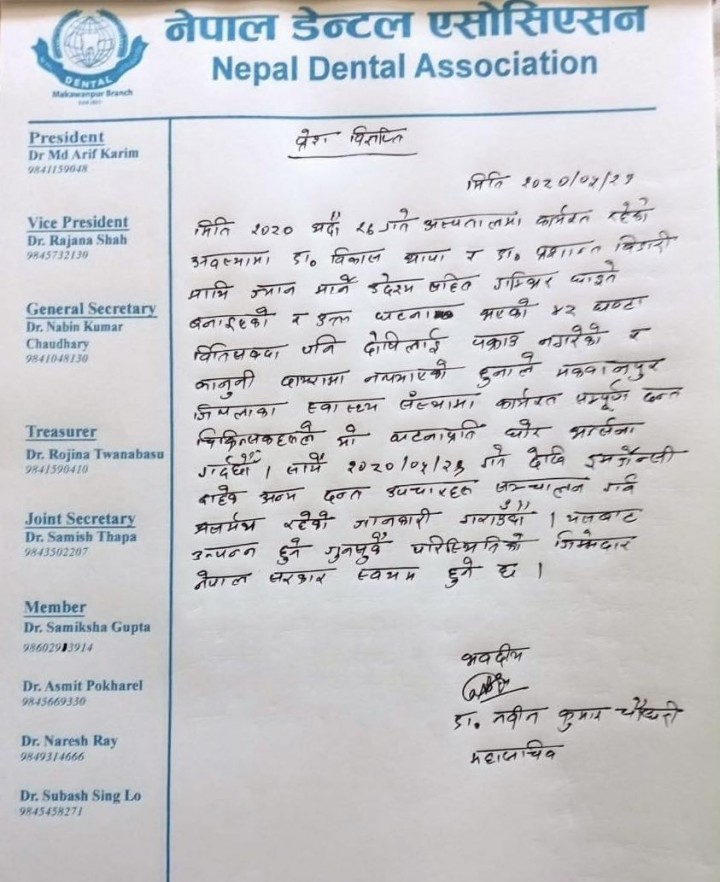 नेपाल डेन्टल एसोसिएसन
Nepal Dental Association
DENTAL
Makawanpur Branch
President
Dr Md Arif Karim
9841159048
Vice President
Dr. Rajana Shah
9845732130
General Secretary
Dr. Nabin Kumar
Chaudhary
9841048130
Treasurer
Dr. Rojina Twanabasu
9841590410
Joint Secretary
Dr. Samish Thapa
9843502207
Member
Dr. Samiksha Gupta
9860293914
Dr. Asmit Pokharel
9845669330
Dr. Naresh Ray
9849314666
Dr. Subash Sing Lo
9845458271
प्रेस विज्ञप्ति
मिति २०८०/०५/२९
मिति २०८० भदौ २६ गते अस्पतालमा कार्यरत रहेको
अवस्थामा डा. विकास थापा र डा. प्रशान्त बिडारी
माथि ज्यान मार्ने उदेश्य सहित गम्भिर घाइते
बनाइएको र उक्त घटना भएको ४२ घण्टा
वितिसक्दा पनि दोषिलाई पक्राउ नगरेको र
कानुनी दायरामा नल्याएको हुनाले मकवानपुर
जिल्लाका स्वास्थ्य संस्थामा कार्यरत सम्पूर्ण दन्त
चिकित्सकहरुले यो घटनाप्रति घोर भर्त्सना
गर्दछौं । साथै २०८०/०५/२९ गते देखि इमर्जेन्सी
बाहेक अन्य दन्त उपचारहरु सञ्चालन गर्न
असमर्थ रहेको जानकारी गराउँछौं । यसबाट
उत्पन्न हुने गुनपुर्वे परिस्थितिको जिम्मेदार
नेपाल सरकार स्वयम हुने छ ।
भवदीय
डा. नवीन कुमार चौधरी
महासचिव